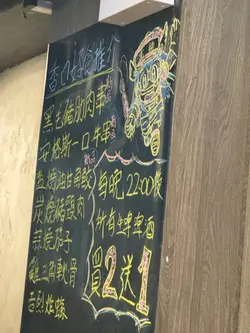 香口推介
黑毛豬肋肉串
安格斯一口牛串
鹽燒油甘魚鮫
炭燒豬頸肉
蒜燒茄子
三角軟骨
吉列炸蠔
每晚22:00後
所有啤酒
買2送1